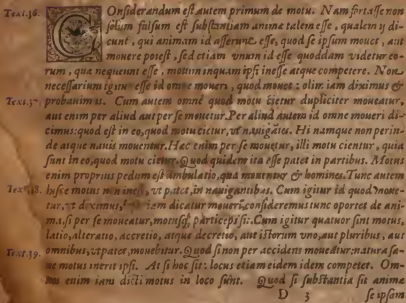 Text.36. COnsiderandum est autem primum de motu. Nam fortasse non
solum falsum est substantiam animæ talem esse, qualem ij di-
cunt, qui animam id asserunt esse, quod se ipsum mouet, aut
mouere potest, sed etiam vnum id esse quoddam videtur eo-
rum, quæ nequeunt esse, motum inquam ipsi inesse atque competere. Non
necessarium igitur esse id omne moueri, quod mouet: olim iam diximus &
Text.37. probauimus. Cum autem omne quod motu cietur dupliciter moueatur,
aut enim per aliud aut per se mouetur. Per aliud autem id omne moueri di-
cimus: quod est in eo, quod motu cietur, vt nauigãtes. Hi namque non perin-
de atque nauis mouentur. Hæc enim per se mouetur, illi motu cientur, quia
sunt in eo, quod motu cietur. Quod quidem ita esse patet in partibus. Motus
enim proprius pedum est ambulatio, quæ & homines. Tunc autem
Text.38. hisce motus non inest, vt patet, in nauigantibus. Cum igitur id quod moue-
tur, vt diximus, dicatur moueri: consideremus tunc oportet de ani-
ma, si per se moueatur, motusq; particeps sit. Cum igitur quatuor sint motus,
latio, alteratio, accretio, atque decretio, aut istorum vno, aut pluribus, aut
Text.39. omnibus, vt patet, mouebitur. Quod si non per accidens moueatur: natura sa-
ne motus inerit ipsi. At si hoc sit: locus etiam eidem idem competet. Om-
nes enim iam dicti motus in loco sunt. Quod si substantia sit animæ
D 3 se ipsam